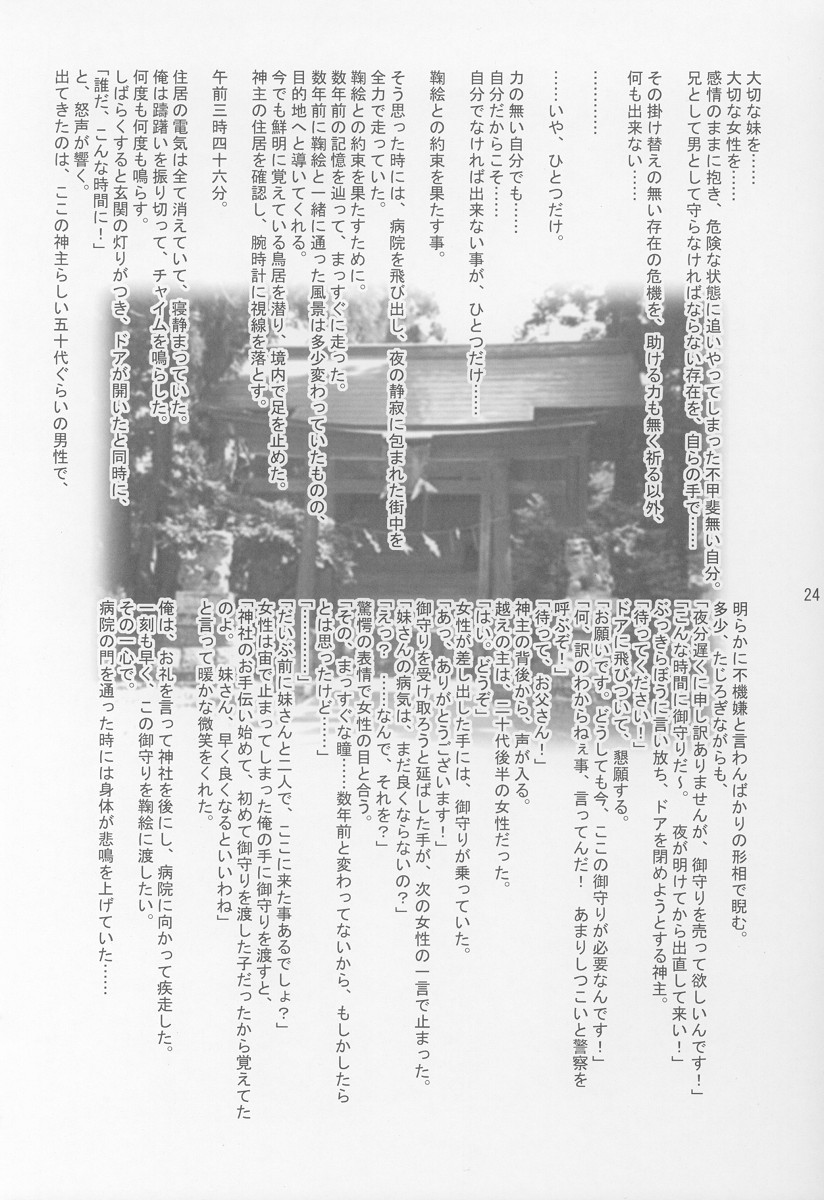 大切な妹を……
大切な女性を……
感情のままに抱き、危険な状態に追いやってしまった不甲斐無い自分。
兄として男として守らなければならない存在を、自らの手で……
その掛け替えの無い存在の危機を、助ける力も無く祈る以外、
何も出来ない……
…………
……いや、ひとつだけ。
力の無い自分でも……
自分だからこそ……
自分でなければ出来ない事が、ひとつだけ……
鞠絵との約束を果たす事。
そう思った時には、病院を飛び出し、夜の静寂に包まれた街中を
全力で走っていた。
鞠絵との約束を果たすために。
数年前の記憶を辿って、まっすぐに走った。
数年前に鞠絵と一緒に通った風景は多少変わっていたものの、
目的地へと導いてくれる。
今でも鮮明に覚えている鳥居を潜り、境内で足を止めた。
神主の住居を確認し、腕時計に視線を落とす。
午前三時四十六分。
住居の電気は全て消えていて、寝静まっていた。
俺は躊躇いを振り切って、チャイムを鳴らした。
何度も何度も鳴らす。
しばらくすると玄関の灯りがつき、ドアが開いたと同時に、
「誰だ、こんな時間に！」
と、怒声が響く。
出てきたのは、ここの神主らしい五十代ぐらいの男性で、
明らかに不機嫌と言わんばかりの形相で睨む。
多少、たじろぎながらも、
「夜分遅くに申し訳ありませんが、御守りを売って欲しいんです！」
「こんな時間に御守りだ〜。　夜が明けてから出直して来い！」
ぶっきらぼうに言い放ち、ドアを閉めようとする神主。
「待ってください！」
ドアに飛びついて、懇願する。
「お願いです。どうしても今、ここの御守りが必要なんです！」
「何、訳のわからねぇ事、言ってんだ！　あまりしつこいと警察を
呼ぶぞ！」
「待って、お父さん！」
神主の背後から、声が入る。
越えの主は、二十代後半の女性だった。
「はい。どうぞ」
女性が差し出した手には、御守りが乗っていた。
「あっ、ありがとうございます！」
御守りを受け取ろうと延ばした手が、次の女性の一言で止まった。
「妹さんの病気は、まだ良くならないの？」
「えっ？　……なんで、それを？」
驚愕の表情で女性の目と合う。
「その、まっすぐな瞳……数年前と変わってないから、もしかしたら
とは思ったけど……」
「…………」
「だいぶ前に妹さんと二人で、ここに来た事あるでしょ？」
女性は宙で止まってしまった俺の手に御守りを渡すと、
「神社のお手伝い始めて、初めて御守りを渡した子だったから覚えてた
のよ。　妹さん、早く良くなるといいわね」
と言って暖かな微笑をくれた。
俺は、お礼を言って神社を後にし、病院に向かって疾走した。
一刻も早く、この御守りを鞠絵に渡したい。
その一心で。
病院の門を通った時には身体が悲鳴を上げていた……
24